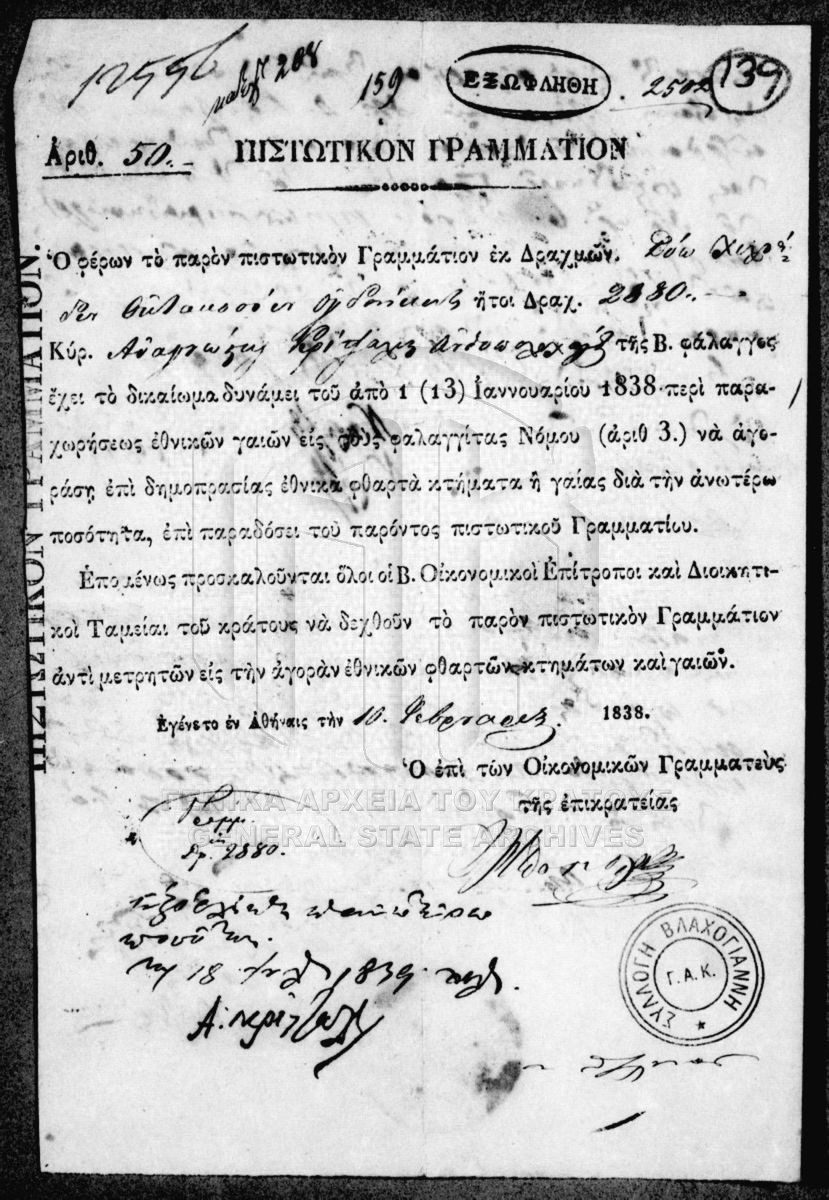 12596
208
159
ΕΞΩΦΛΗΘΗ
2502
139
Ἀριθ. 50.
ΠΙΣΤΩΤΙΚΟΝ ΓΡΑΜΜΑΤΙΟΝ
ΠΙΣΤΩΤΙΚΟΝ ΓΡΑΜΜΑΤΙΟΝ.
Ὁ φέρων τὸ παρὸν πιστωτικὸν Γραμμάτιον ἐκ Δραχμῶν. Δύω Χιλιά-
δων Ὀκτακοσίων Ὀγδοήκοντα ἤτοι Δραχ. 2880.
Κύρ. τῆς Β. φάλαγγος
ἔχει τὸ δικαίωμα δυνάμει τοῦ ἀπὸ 1 (13) Ἰαννουαρίου 1838 περὶ παρα-
χωρήσεως ἐθνικῶν γαιῶν εἰς τοὺς φαλαγγίτας Νόμου (ἀριθ 3.) νὰ ἀγο-
ράσῃ ἐπὶ δημοπρασίας ἐθνικὰ φθαρτὰ κτήματα ἢ γαίας διὰ τὴν ἀνωτέρω
ποσότητα, ἐπὶ παραδόσει τοῦ παρόντος πιστωτικοῦ Γραμματίου.
Ἑπομένως προσκαλοῦνται ὅλοι οἱ Β. Οἰκονομικοὶ Ἐπίτροποι καὶ Διοικητι-
κοὶ Ταμείαι τοῦ κράτους νὰ δεχθοῦν τὸ παρὸν πιστωτικὸν Γραμμάτιον
ἀντὶ μετρητῶν εἰς τὴν ἀγορὰν ἐθνικῶν φθαρτῶν κτημάτων καὶ γαιῶν.
Ἐγένετο ἐν Ἀθήναις τὴν 10. Φεβρουαρίου. 1838.
Ὁ ἐπὶ τῶν Οἰκονομικῶν Γραμματεὺς
τῆς ἐπικρατείας
ΓΕΝΙΚΑ ΑΡΧΕΙΑ ΤΟΥ ΚΡΑΤΟΥΣ
GENERAL STATE ARCHIVES
Γραμμ.
Δρ. 2880.
18 1839
ΣΥΛΛΟΓΗ ΒΛΑΧΟΓΙΑΝΝΗ
Γ.Α.Κ.